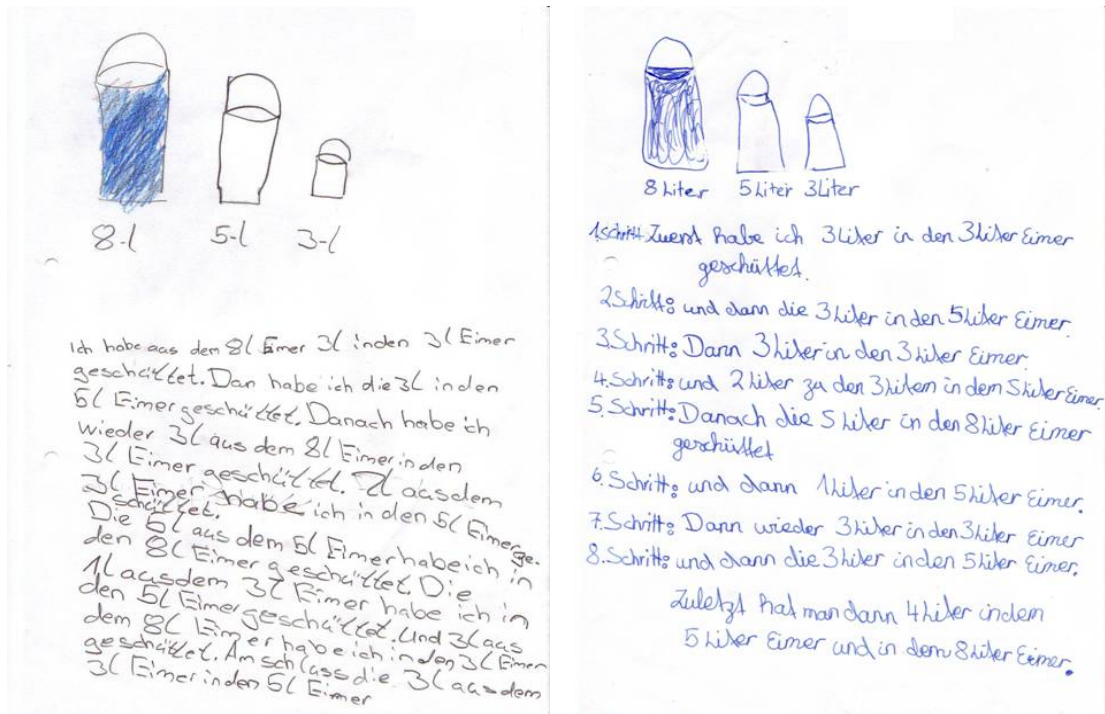 8-l 5-l 3-l
Ich habe aus dem 8l Eimer 3l in den 3l Eimer
geschüttet. Dan habe ich die 3l in den
5l Eimer geschüttet. Danach habe ich
wieder 3l aus dem 8l Eimer in den
3l Eimer geschüttet. 2l aus dem
3l Eimer habe ich in den 5l Eimer ge-
schüttet.
Die 5l aus dem 5l Eimer habe ich in
den 8l Eimer geschüttet. Die
1l aus dem 3l Eimer habe ich in
den 5l Eimer geschüttet. Und 3l aus
dem 8l Eimer habe ich in den 3l Eimer
geschüttet. Am schluss die 3l aus dem
3l Eimer in den 5l Eimer
8 Liter 5 Liter 3 Liter
1.Schritt: Zuerst habe ich 3 Liter in den 3 Liter Eimer
geschüttet.
2 Schritt: und dann die 3 Liter in den 5 Liter Eimer.
3.Schritt: Dann 3 Liter in den 3 Liter Eimer.
4.Schritt: und 2 Liter zu den 3 Litern in dem 5 Liter Eimer.
5.Schritt: Danach die 5 Liter in den 8 Liter Eimer
geschüttet
6.Schritt: und dann 1 Liter in den 5 Liter Eimer.
7.Schritt: Dann wieder 3 Liter in den 3 Liter Eimer
8.Schritt: und dann die 3 Liter in den 5 Liter Eimer.
Zuletzt hat man dann 4 Liter in dem
5 Liter Eimer und in dem 8 Liter Eimer.